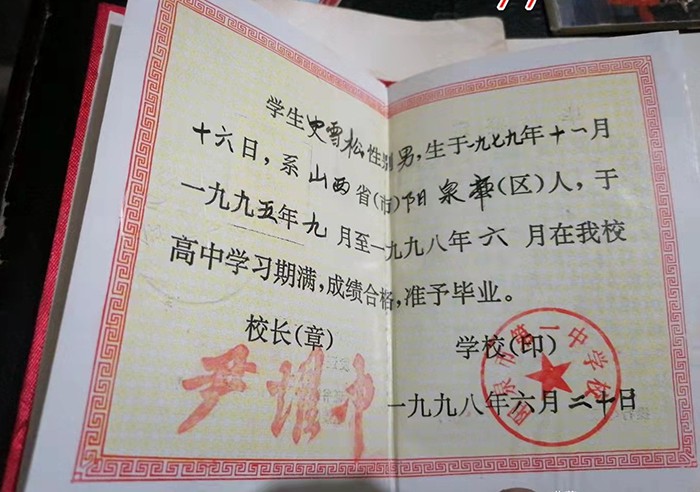 学生史雪松性别男,生于一九七九年十一月
十六日,系山西省(市)阳泉郊(区)人,于
一九九五年九月至一九九八年六月在我校
高中学习期满,成绩合格,准予毕业。
校长(章) 学校(印)
尹
一九九八年六月二十日
阳泉市第一中学校